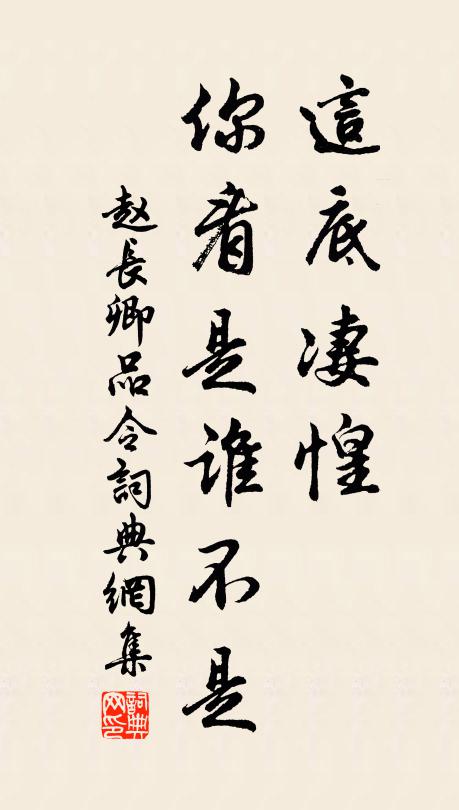 這底凄惶
你看是誰不是
赵長卿品令詞典網集
詞典网印